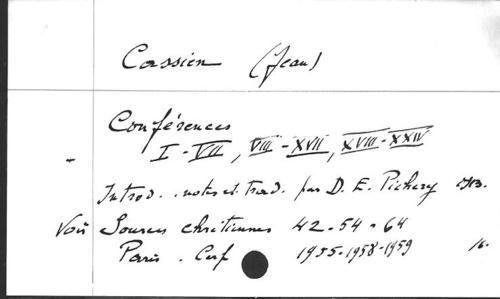 Cassien (Jean)
Conférences
I - VII, VIII - XVII, XVIII - XXIV
Introd. notes et trad. par D. E. Pichery
Voir Sources chrétiennes 42 - 54 - 64
Paris. Cerf 1955-1958-1959 16.